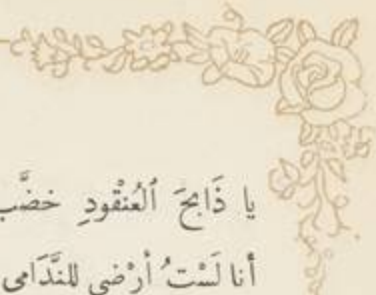 يا ذَابِحَ ٱلْعُنْقودِ خضَّب
أنا لَسْتُ أرْضى للنَّدَامى